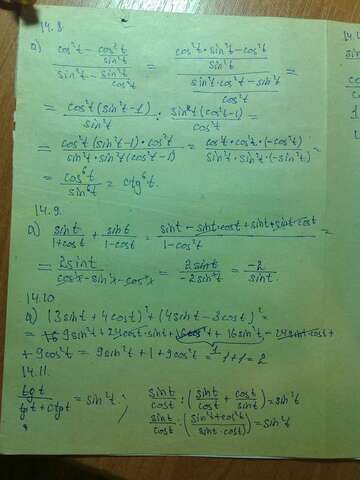 14.8
а) (cos²t - cos²t/sin²t)/(sin²t - sin²t/cos²t) = ((cos²t·sin²t - cos²t)/sin²t)/((sin²t·cos²t - sin²t)/cos²t) =
= cos²t(sin²t-1)/sin²t : sin²t(cos²t-1)/cos²t =
= cos²t(sin²t-1)·cos²t/sin²t·sin²t(cos²t-1) = cos²t·cos²t·(-cos²t)/sin²t·sin²t·(-sin²t) =
= cos⁶t/sin⁶t = ctg⁶t.
14.9.
а) sint/1+cost + sint/1-cost = sint - sint·cost + sint + sint·cost/1-cos²t =
= 2sint/cos²x-sin²x-cos²x = 2sint/-2sin²t = -2/sint.
14.10
а) (3sint+4cost)²+(4sint-3cost)²=
= 9sin²t+24cost·sint+16cos²t+16sin²t-24sint·cost+
+9cos²t = 9sin²t+1+9cos²t = 1+1=2
14.11.
tgt/tgt+ctgt = sin²t. sint/cost : (sint/cost + cost/sint) = sin²t
sint/cost : (sin²t+cos²t/sint·cost) = sin²t
14.